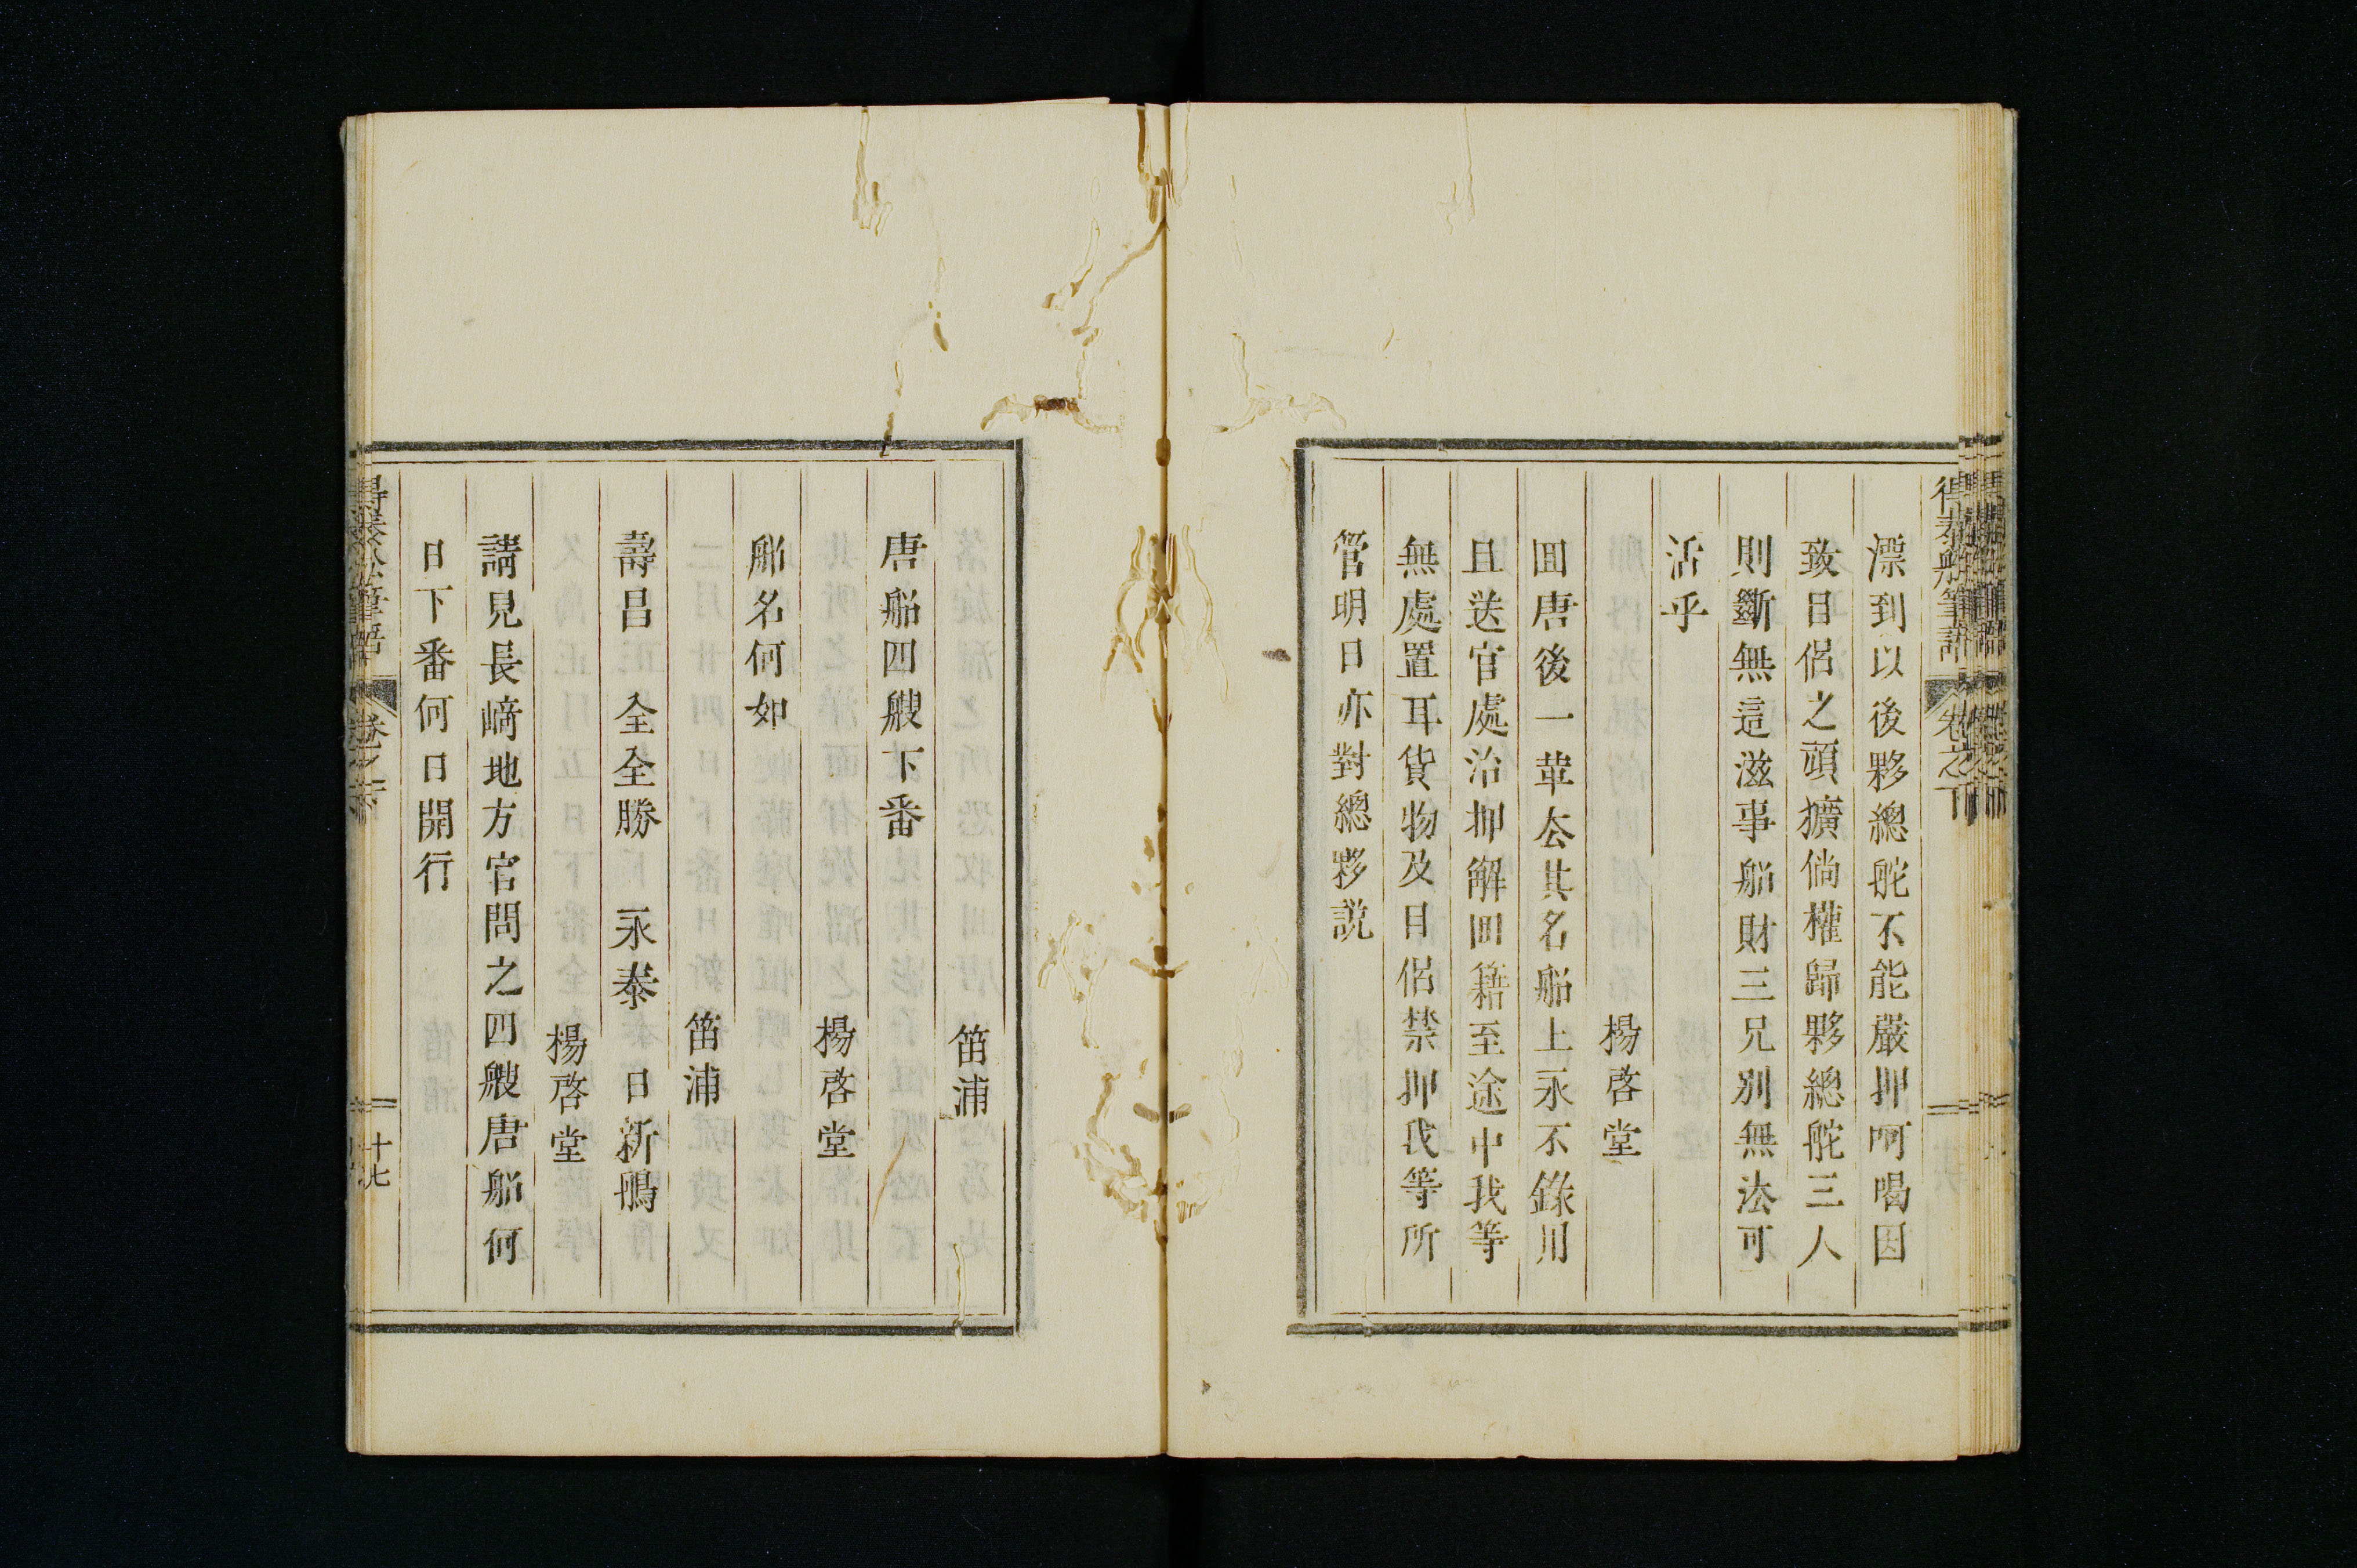 得泰船筆語 卷之下
漂到以後夥總舵不能嚴押呵喝因
致目侶之頑獷倘權歸夥總舵三人
則斷無這滋事船財三兄別無法可
活乎
楊啓堂
回唐後一革公其名船上永不錄用
且送官處治押解回籍至途中我等
無處置耳貨物及目侶禁押我等所
管明日亦對總夥説
笛浦
唐船四艘下番
楊啓堂
船名何如
笛浦
壽昌 全全勝 永泰 日新鵬
楊啓堂
請見長崎地方官問之四艘唐船何
日下番何日開行
卷之下
十七